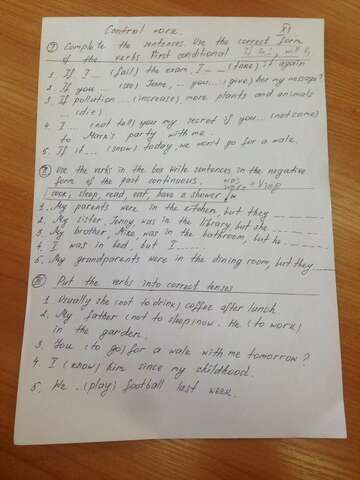 Control work. XI
I Complete the sentences. Use the correct form
of the verbs. First conditional If
1. If I ... (fail) the exam, I ... (take) it again
2. If you ... (see) Jane, ... you ... (give) her my message?
3. If pollution ... (increase) more plants and animals
... (die).
4. I .... (not tell) you my secret if you ... (not come)
to Mark's party with me.
5. If it ... (snow) today, we won't go for a walk.
II Use the verbs in the box write sentences in the negative
form of the past continuous. was were + Ving
cook, sleep, read, eat, have a shower
1. My parents were in the kitchen, but they ______
2. My sister, Jenny was in the library, but she ______
3. My brother, Mike was in the bathroom, but he ______
4. I was in bed, but I ______
5. My grandparents were in the dining room, but they ______
III Put the verbs into correct tenses
1. Usually she (not to drink) coffee after lunch.
2. My father (not to sleep) now. He (to work)
in the garden.
3. You (to go) for a walk with me tomorrow?
4. I (know) him since my childhood.
5. He (play) football last week.